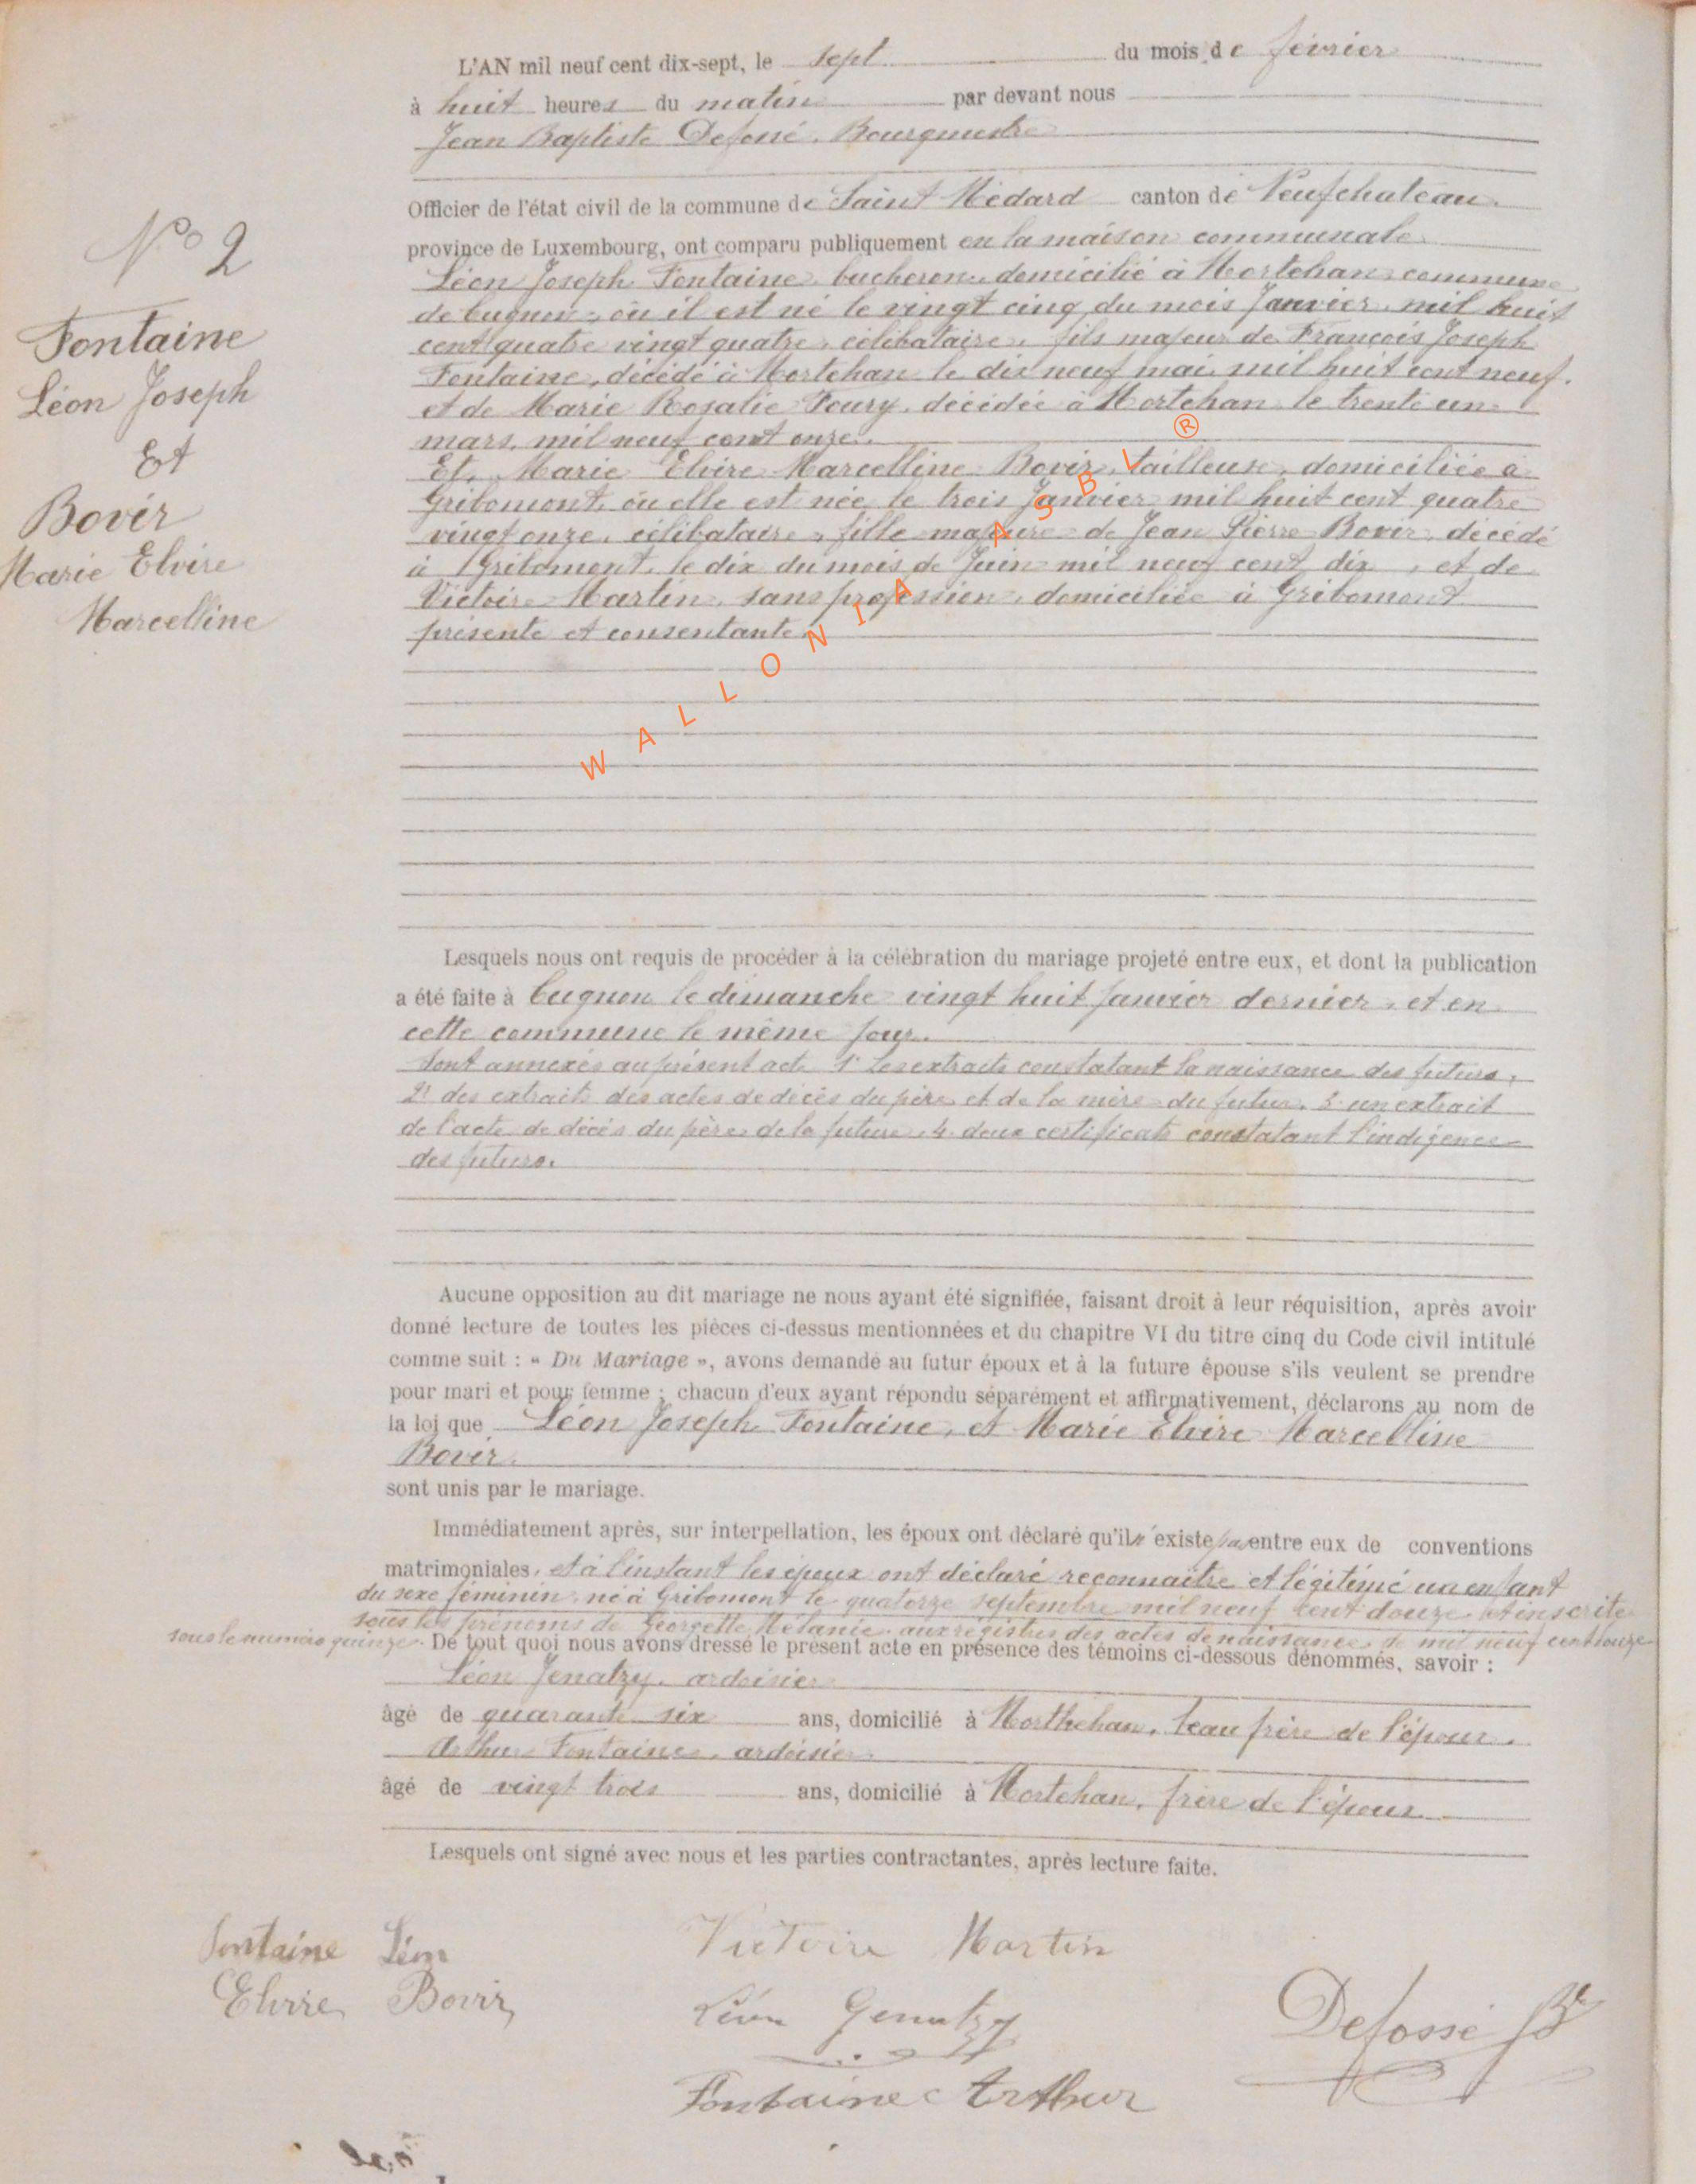 L'AN mil neuf cent dix-sept, le sept du mois de février
à huit heures du matin par devant nous
Jean Baptiste Defossé, Bourgmestre
Officier de l'état civil de la commune de Saint Médard canton de Neufchateau
province de Luxembourg, ont comparu publiquement en la maison communale
Léon Joseph Fontaine, bucheron, domicilié à Mortehan, commune
de Cugnon, où il est né le vingt cinq du mois Janvier, mil huit
cent quatre vingt quatre, célibataire, fils majeur de François Joseph
Fontaine, décédé à Mortehan le dix neuf mai mil huit cent neuf.
et de Marie Rosalie Foury, décédée à Mortehan le trente un
mars, mil neuf cent onze.
Et, Marie Elvire Marcelline Bovir, tailleuse, domiciliée à
Gribomont, où elle est née le trois Janvier mil huit cent quatre
vingt onze, célibataire, fille majeure de Jean Pierre Bovir, décédé
à Gribomont, le dix du mois de Juin mil neuf cent dix, et de
Victoire Martin, sans profession, domiciliée à Gribomont
présente et consentante.
N° 2
Fontaine
Léon Joseph
Et
Bovir
Marie Elvire
Marcelline
WALLONIA ASBL ®
Lesquels nous ont requis de procéder à la célébration du mariage projeté entre eux, et dont la publication
a été faite à Cugnon le dimanche vingt huit Janvier dernier, et en
cette commune le même jour.
Sont annexés au présent acte 1° les extraits constatant la naissance des futurs,
2° des extraits des actes de décès du père et de la mère du futur, 3° un extrait
de l'acte de décès du père de la future, 4° deux certificats constatant l'indigence
des futurs.
Aucune opposition au dit mariage ne nous ayant été signifiée, faisant droit à leur réquisition, après avoir
donné lecture de toutes les pièces ci-dessus mentionnées et du chapitre VI du titre cinq du Code civil intitulé
comme suit : « Du Mariage », avons demandé au futur époux et à la future épouse s'ils veulent se prendre
pour mari et pour femme ; chacun d'eux ayant répondu séparément et affirmativement, déclarons au nom de
la loi que Léon Joseph Fontaine, et Marie Elvire Marcelline
Bovir.
sont unis par le mariage.
Immédiatement après, sur interpellation, les époux ont déclaré qu'il n'existe pas entre eux de conventions
matrimoniales, et à l'instant les époux ont déclaré reconnaître et légitimé un enfant
du sexe féminin, né à Gribomont le quatorze septembre mil neuf cent douze et inscrite
sous les prénoms de Georgette Mélanie aux régistres des actes de naissance de mil neuf cent douze
sous le numéro quinze. De tout quoi nous avons dressé le présent acte en présence des témoins ci-dessous dénommés, savoir :
Léon Jenatzy, ardoisier
âgé de quarante six ans, domicilié à Morthehan, beau frère de l'époux.
Arthur Fontaine, ardoisier.
âgé de vingt trois ans, domicilié à Mortehan, frère de l'époux
Lesquels ont signé avec nous et les parties contractantes, après lecture faite.
Fontaine Léon
Elvire Bovir
Victoire Martin
Léon Genatzy
Fontaine Arthur
Defossé